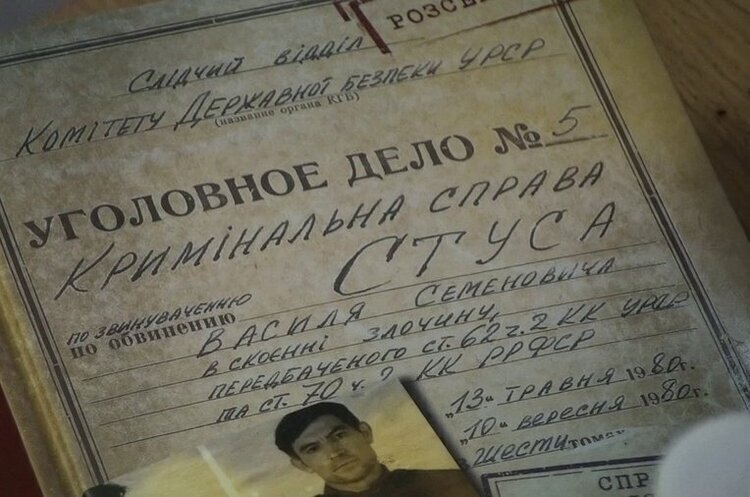 РОЗС
СЛІДЧИЙ ВІДДІЛ
КОМІТЕТУ ДЕРЖАВНОЇ БЕЗПЕКИ УРСР
(название органа КГБ)
УГОЛОВНОЕ ДЕЛО № 5
КРИМІНАЛЬНА СПРАВА
СТУСА
ПО ЗВИНУВАЧЕННЮ
по обвинению
ВАСИЛЯ СЕМЕНОВИЧА
В СКОЄННІ ЗЛОЧИНУ,
ПЕРЕДБАЧЕНОГО СТ. 62 Ч. 2 КК УРСР
ТА СТ. 70 Ч. 2 КК РРФСР
„13" ТРАВНЯ 1980г.
„10" ВЕРЕСНЯ 1980г.
ШЕСТИ томах
СПР